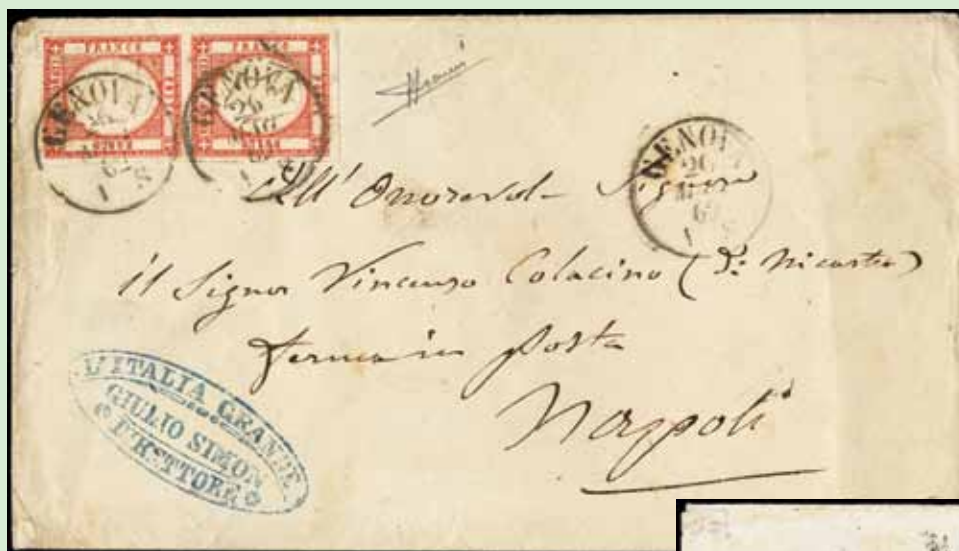 FRANCO FRANCO
GENOVA GENOVA
26
MAG
GENOVA
26
All' Onorevole Signore
il Signor Vincenzo Colacino (Di Nicastro)
ferma in posta
Nappoli
L'ITALIA GRANDE
GIULIO SIMON
DIRETTORE